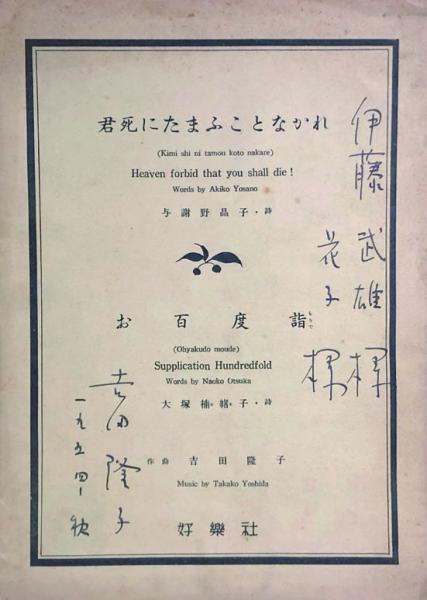 君死にたまふことなかれ
(Kimi shi ni tamou koto nakare)
Heaven forbid that you shall die!
Words by Akiko Yosano
与謝野晶子・詩
お百度詣
もうで
(Ohyakudo moude)
Supplication Hundredfold
Words by Naoko Otsuka
大塚楠緒子・詩
作曲 吉田隆子
Music by Takako Yoshida
好樂社
伊藤武雄様
花子様
吉田隆子
一九五四-秋